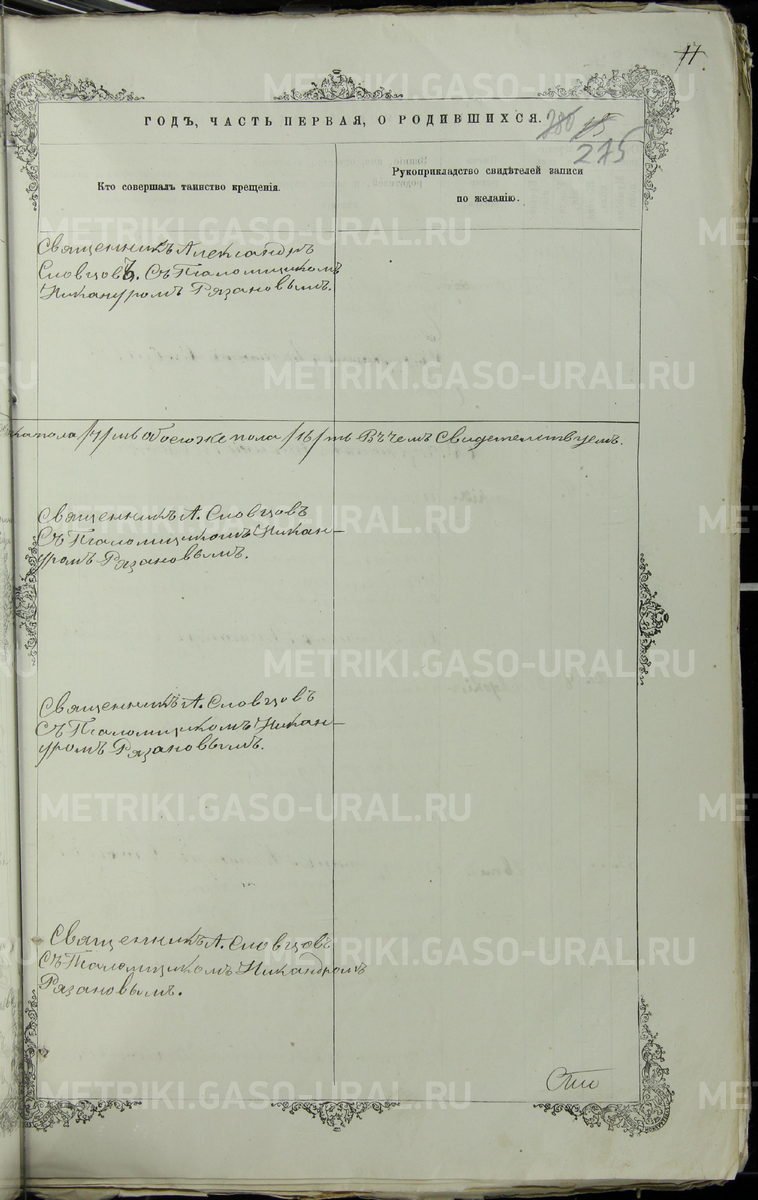 11.
ГОДЪ, ЧАСТЬ ПЕРВАЯ, О РОДИВШИХСЯ.
275
Кто совершалъ таинство крещенія.
Рукоприкладство свидѣтелей записи
по желанію.
Священникъ Александръ
Словцовъ. Съ Псаломщикомъ
Никануромъ Рязановымъ.
пола /7/мь обоего же пола /16/ть Въ чемъ Свидетельствуемъ.
Священникъ А. Словцовъ
Съ Псаломщикомъ Никан-
уромъ Рязановымъ.
Священникъ А. Словцовъ
Съ Псаломщикомъ Никан-
уромъ Рязановымъ.
Священникъ А. Словцовъ
Съ Псаломщикомъ Никандромъ
Рязановымъ.
METRIKI.GASO-URAL.RU